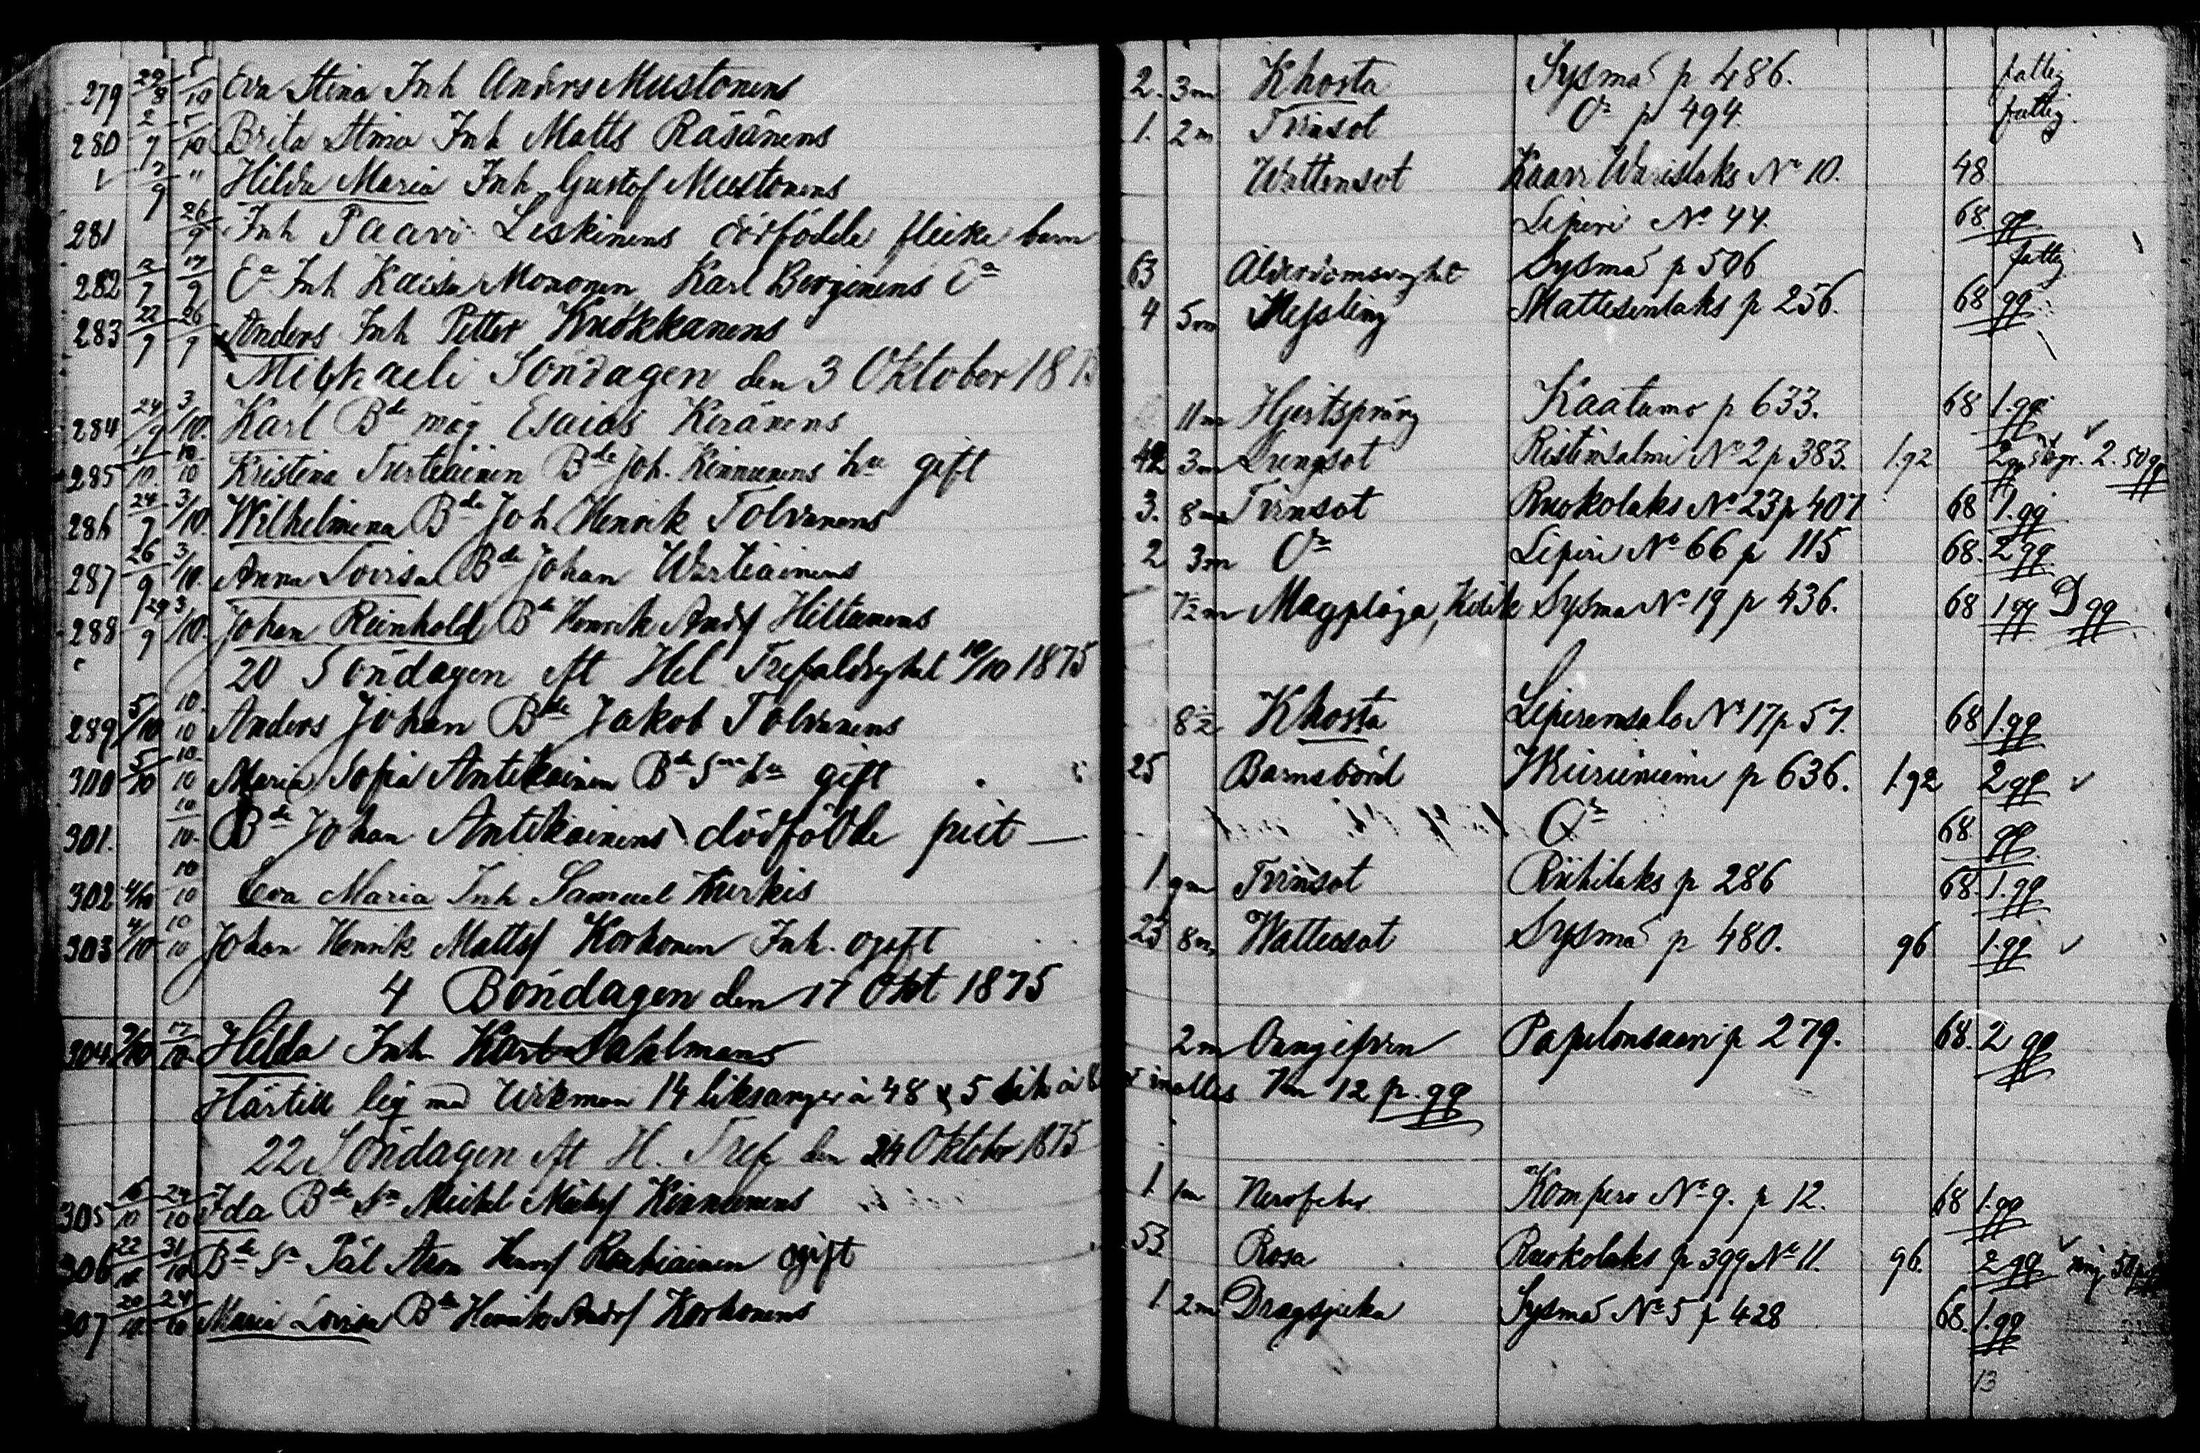 279 29/8 5/10 Eva Stina Inh Anders Mustonens 2. 3m Khosta Sysmä p 486. fattig
280 2/9 5/10 Brita Stina Inh Matts Räsänens 1. 2m Tvinsot Do p 494. fattig.
12/9 " Hilda Maria Inh Gustof Mustonens Wattensot Kaavi Waristaks No 10. 48
281 26/9 Inh Paavo Leskinens dödfödde flicke barn Liperi No 44. 68 gg
282 12/9 17/9 Ea Inh Kaisa Mononen, Karl Berginens Ea 63 Ålderdomsvaghet Sysmä p 506 fattig
283 22/9 26/9 Anders Inh Petter Knokkanens 4 5m Messling Mattisenlaks p 256. 68 gg
Mickaeli Söndagen den 3 Oktober 18
284 24/9 3/10. Karl Bde måg Esaias Keränens 11m Hjertsprång Kaatamo p 633. 68 1.gg
285 10/10 Kristina Turtiainen Bde Joh. Kinnunens hu gift 42 3m Lungsot Ristinsalmi No 2 p 383. 1.92 2 gg 2. 50 gg
286 24/9 3/10. Wilhelmina Bde Joh Henrik Tolvanens 3. 8m Tvinsot Ruokolaks No 23 p 407 68 1.gg
287 26/9 3/10. Anna Lovisa Bde Johan Wartiainens 2 3m Do Liperi No 66 p 115 68. 2 gg
288 29/9 3/10. Johan Reinhold Bde Henrik Andsf Hiltunens 7½m Magplåga, Kolik Sysmä No 19 p 436. 68 1 gg gg
20 Söndagen eft Hel Trefaldighet 10/10 1875
289 5/10 10/10 Anders Johan Bde Jakob Tolvanens 8½ Khosta Liperinsalo No 17 p 57. 68 1.gg
300 5/10 10/10 Maria Sofia Antikainen Bde Sons hu gift 25 Barnsbörd Wiiriniemi p 636. 1.92 2 gg
301. 10/10. Bde Johan Antikainens dödfödde piit — Do 68. gg
302 4/10 10/10 Eva Maria Inh Samuel Kurkis 1 9m Tvinsot Riihilaks p 286 68. 1.gg
303 4/10 10/10 Johan Henrik Mattsf Korhonen Inh. ogift 23 8m Wattusot Sysmä p 480. 96 1.gg
4 Böndagen den 17 Okt 1875
304 9/10 17/10. Hilda Inh. Karl Dahlmans 2m Papelonsaari p 279. 68. 2 gg
Härtill låg med Wirkman 14 liksånger à 48 & 5 lik à inalles Rm 12 p. gg
22 Söndagen eft H. Tref den 24 Oktober 1875
305 16/10 24/10 Ida Bde Sn Mickel Mickelsf Kinnunens 1 1m Nervfeber Kompero No 9. p 12. 68 1.gg
306 22/10 31/10 Bde Sn Pål Aron Henrsf Rautiainen ogift 53 Rosa Ruokolaks p 399 No 11. 96. 2 gg
307 20/10 24/10 Maria Lovisa Bde Henrik Andsf Korhonens 1 2m Dragsjuka Sysmä No 5 p 428 68. 1.gg
13